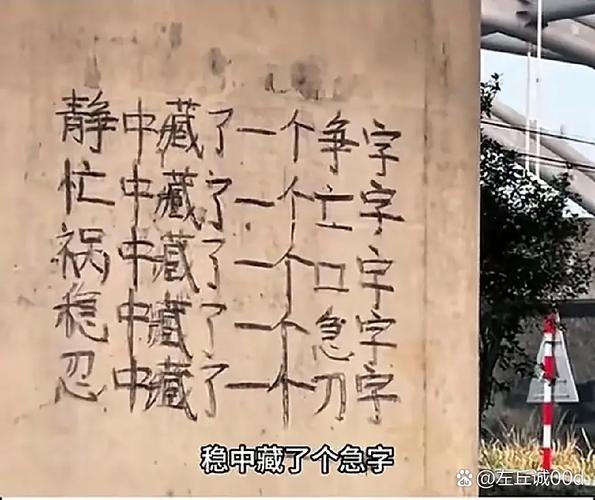 静中藏了一个争字
忙中藏了一个亡字
祸中藏了一个口字
稳中藏了一个急字
忍中藏了一个刀字
稳中藏了个急字
@左丘诚00d